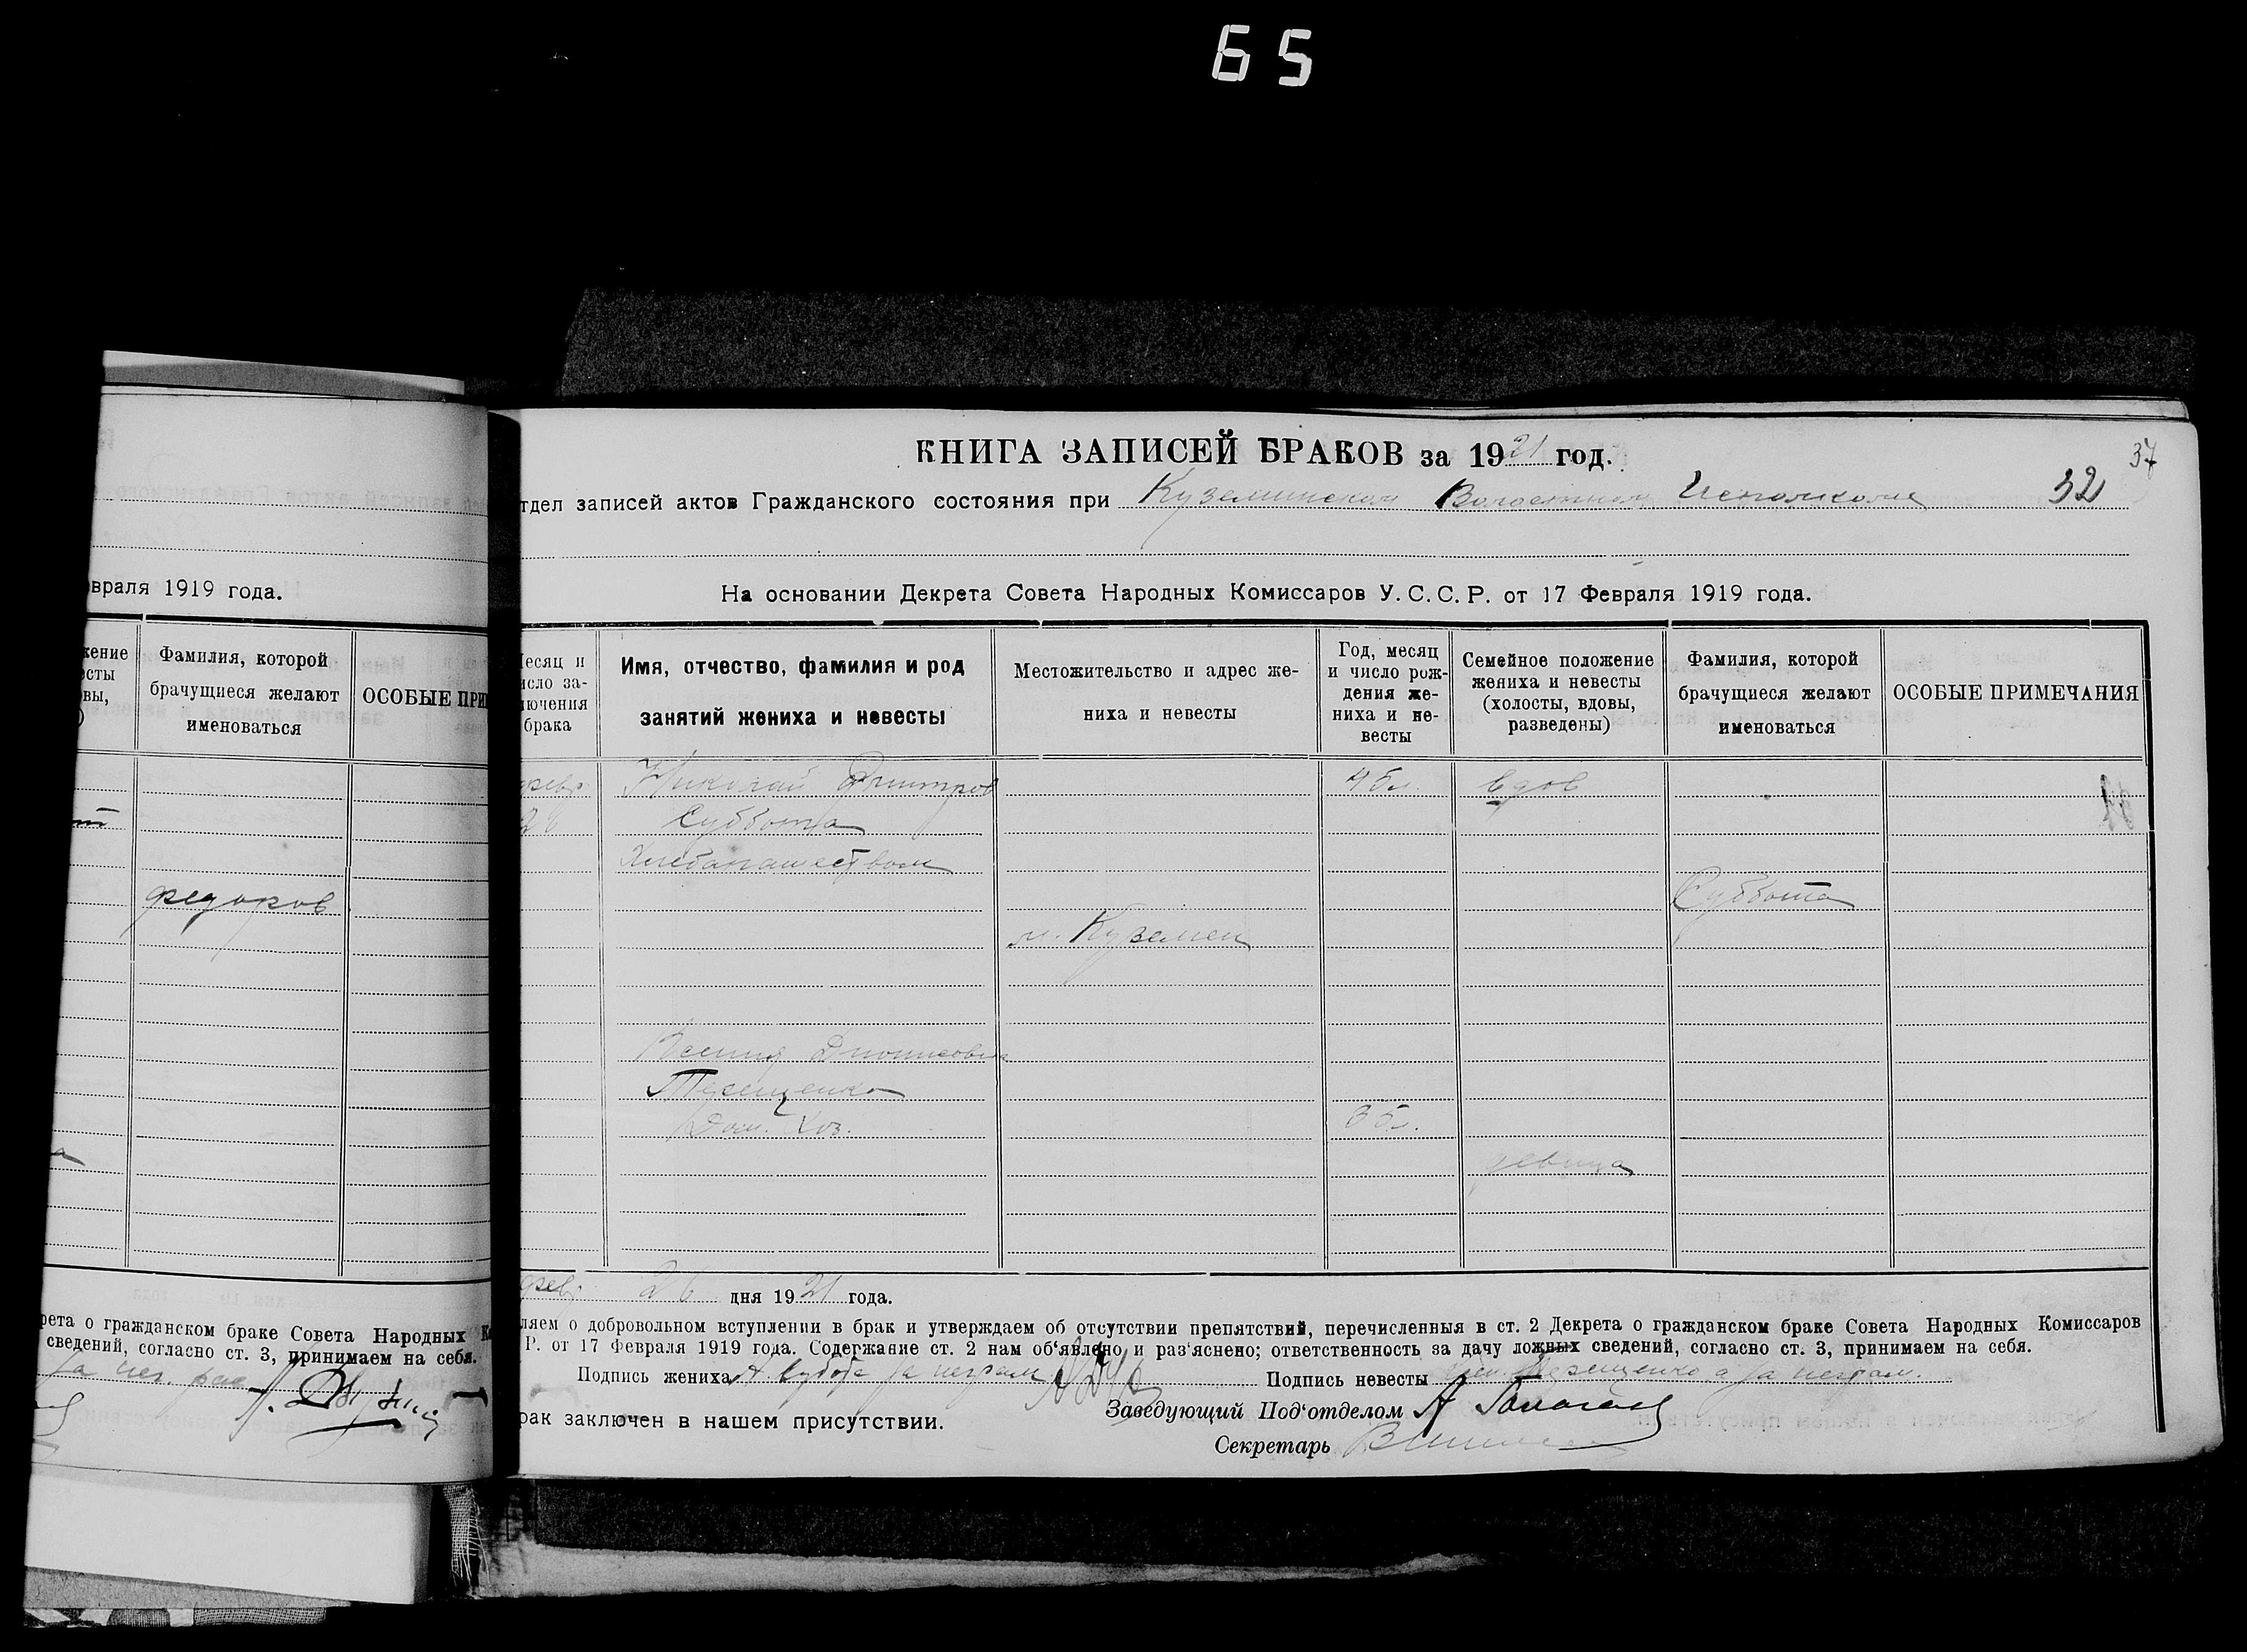 65
37
КНИГА ЗАПИСЕЙ БРАКОВ за 1921 год.
тдел записей актов Гражданского состояния при Куземинском Волостном Исполкоме 32
На основании Декрета Совета Народных Комиссаров У.С.С.Р. от 17 Февраля 1919 года.
есяц и исло за- лючения брака
Имя, отчество, фамилия и род занятий жениха и невесты
Местожительство и адрес же- ниха и невесты
Год, месяц и число рож- дения же- ниха и не- весты
Семейное положение жениха и невесты (холосты, вдовы, разведены)
Фамилия, которой брачущиеся желают именоваться
ОСОБЫЕ ПРИМЕЧАНИЯ
февр Николай Дмитров 45л вдов
26 Суббота
Хлебопашеством
Суббота
м. Куземен
Терещенко
Дом. Хоз. 35л.
девица
февр 26 дня 1921 года.
ляем о добровольном вступлении в брак и утверждаем об отсутствии препятствий, перечисленных в ст. 2 Декрета о гражданском браке Совета Народных Комиссаров
Р. от 17 Февраля 1919 года. Содержание ст. 2 нам об'явлено и раз'яснено; ответственность за дачу ложных сведений, согласно ст. 3, принимаем на себя.
Подпись жениха за неграм Подпись невесты Терещенко а за неграм.
рак заключен в нашем присутствии.
Заведующий Под'отделом А
Секретарь
враля 1919 года.
жение есты вы,
Фамилия, которой брачущиеся желают именоваться
ОСОБЫЕ ПРИ
федоров
рета о гражданском браке Совета Народных К
сведений, согласно ст. 3, принимаем на себя.
за нег.